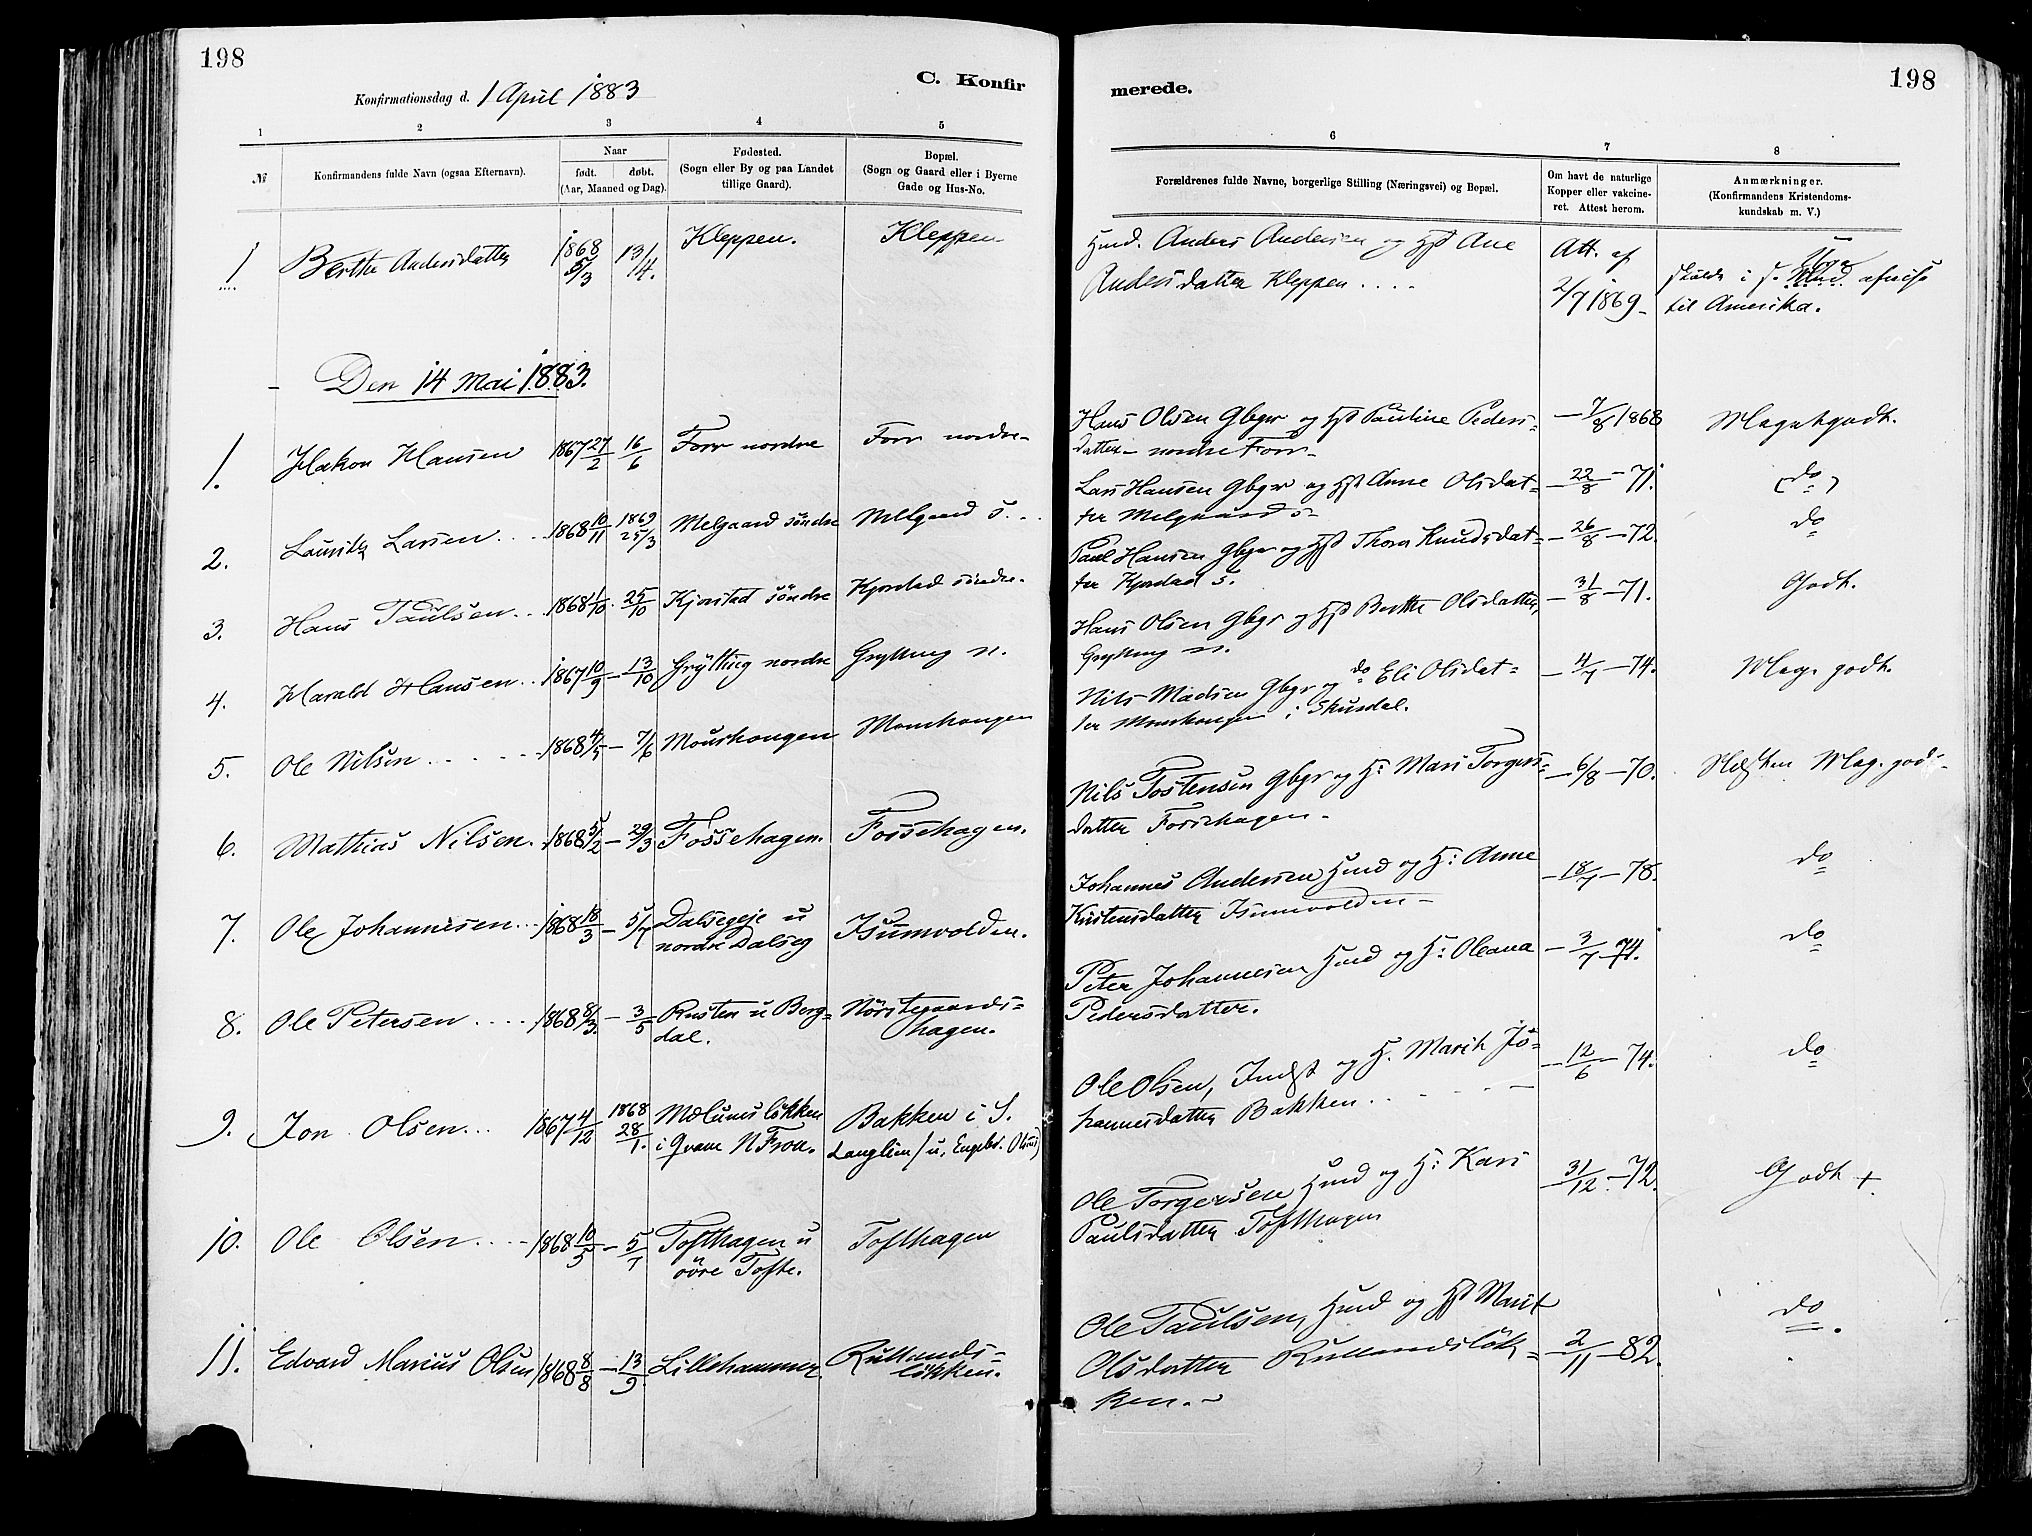 198
C. Konfir
merede.
198
Konfirmationsdag d. 1 April 1883
1 2 3 4 5 6 7 8
№
Konfirmandens fulde Navn (ogsaa Efternavn).
Naar
født. døbt.
(Aar, Maaned og Dag).
Fødested.
(Sogn eller By og paa Landet
tillige Gaard).
Bopæl.
(Sogn og Gaard eller i Byerne
Gade og Hus-No.
Forældrenes fulde Navne, borgerlige Stilling (Næringsvei) og Bopæl.
Om havt de naturlige
Kopper eller vakcine-
ret. Attest herom.
Anmærkninger.
(Konfirmandens Kristendoms-
kundskab m. V.)
1 Berthe Andersdatter 1868 5/3 13/4. Kleppen. Kleppen
Hmd. Anders Andersen og Hst Ane
Andersdatter Kleppen ....
Att. af
2/7 1869
i
til Amerika.
Den 14 Mai 1883.
1. Hakon Hansen 1867 27/2 16/6 Forr nordre Forr nordre
Hans Olsen Gbgr og Hst Pauline Peders-
datter nordre Forr
7/8 1868 Megetgodt.
2. Lauritz Larsen 1868 10/11 1869 25/3 Melgaard søndre Melgaard S.
Lars Hansen Gbgr og Hst Anne Olsdat-
ter Melgaard S
22/8 71. (do)
3. Hans Paulsen 1868 1/10. 25/10 Kjorstad søndre Kjorstad søndre.
Paul Hansen Gbgr og Hst Thora Knudsdat-
ter Kjorstad S.
26/8 72. do
4. Harald Hansen 1867 10/9 13/10 Grytting nordre Grytting N.
Hans Olsen Gbgr og Hst Berthe Olsdatter,
Grytting N.
31/8 71. Godt.
5. Ole Nilsen 1868 4/5 7/6 Mourhougen Mourhougen
Nils Madsen Gbgr og do Eli Olsdat-
ter Mourhougen i Skurdal.
4/7 74. Meg. godt.
6. Mathias Nilsen. 1868 5/2 29/3 Fossehagen. Fossehagen.
Nils Tostensen Gbgr og H: Mari Torgers-
datter Fossehagen
6/8 70. Næsten Meg. godt
7. Ole Johannesen 1868 18/3 5/7 Dalsegeje u
nordre Dalseg
Isumvolden.
Johannes Andersen Hmd og H: Anne
Kristensdatter Isumvolden
18/7 78. do
8. Ole Petersen 1868 8/3. 3/5 Rusten u Berg-
dal.
Nörstegaards-
hagen.
Peter Johannesen Hmd og H: Oleana
Pedersdatter.
3/7 74. do
9. Jon Olsen 1867 4/12 1868 28/1. Mælumsløkken
i Qvam N Fron.
Bakken i S.
Langlien (u. Engebr. Olsens)
Ole Olsen, Indst og H. Marit Jo-
hannesdatter Bakken
12/6 74. do
10. Ole Olsen 1868 10/5 5/7 Tofthagen u
övre Tofte.
Tofthagen
Ole Torgersen Hmd og H: Kari
Paulsdatter Tofthagen
31/12 72. Godt +.
11. Edvard Marius Olsen 1868 8/8 13/9 Lillehammer. Rullands-
løkken.
Ole Paulsen, Hmd og Hst Marit
Olsdatter Rullandsløk-
ken.
2/11 82. do